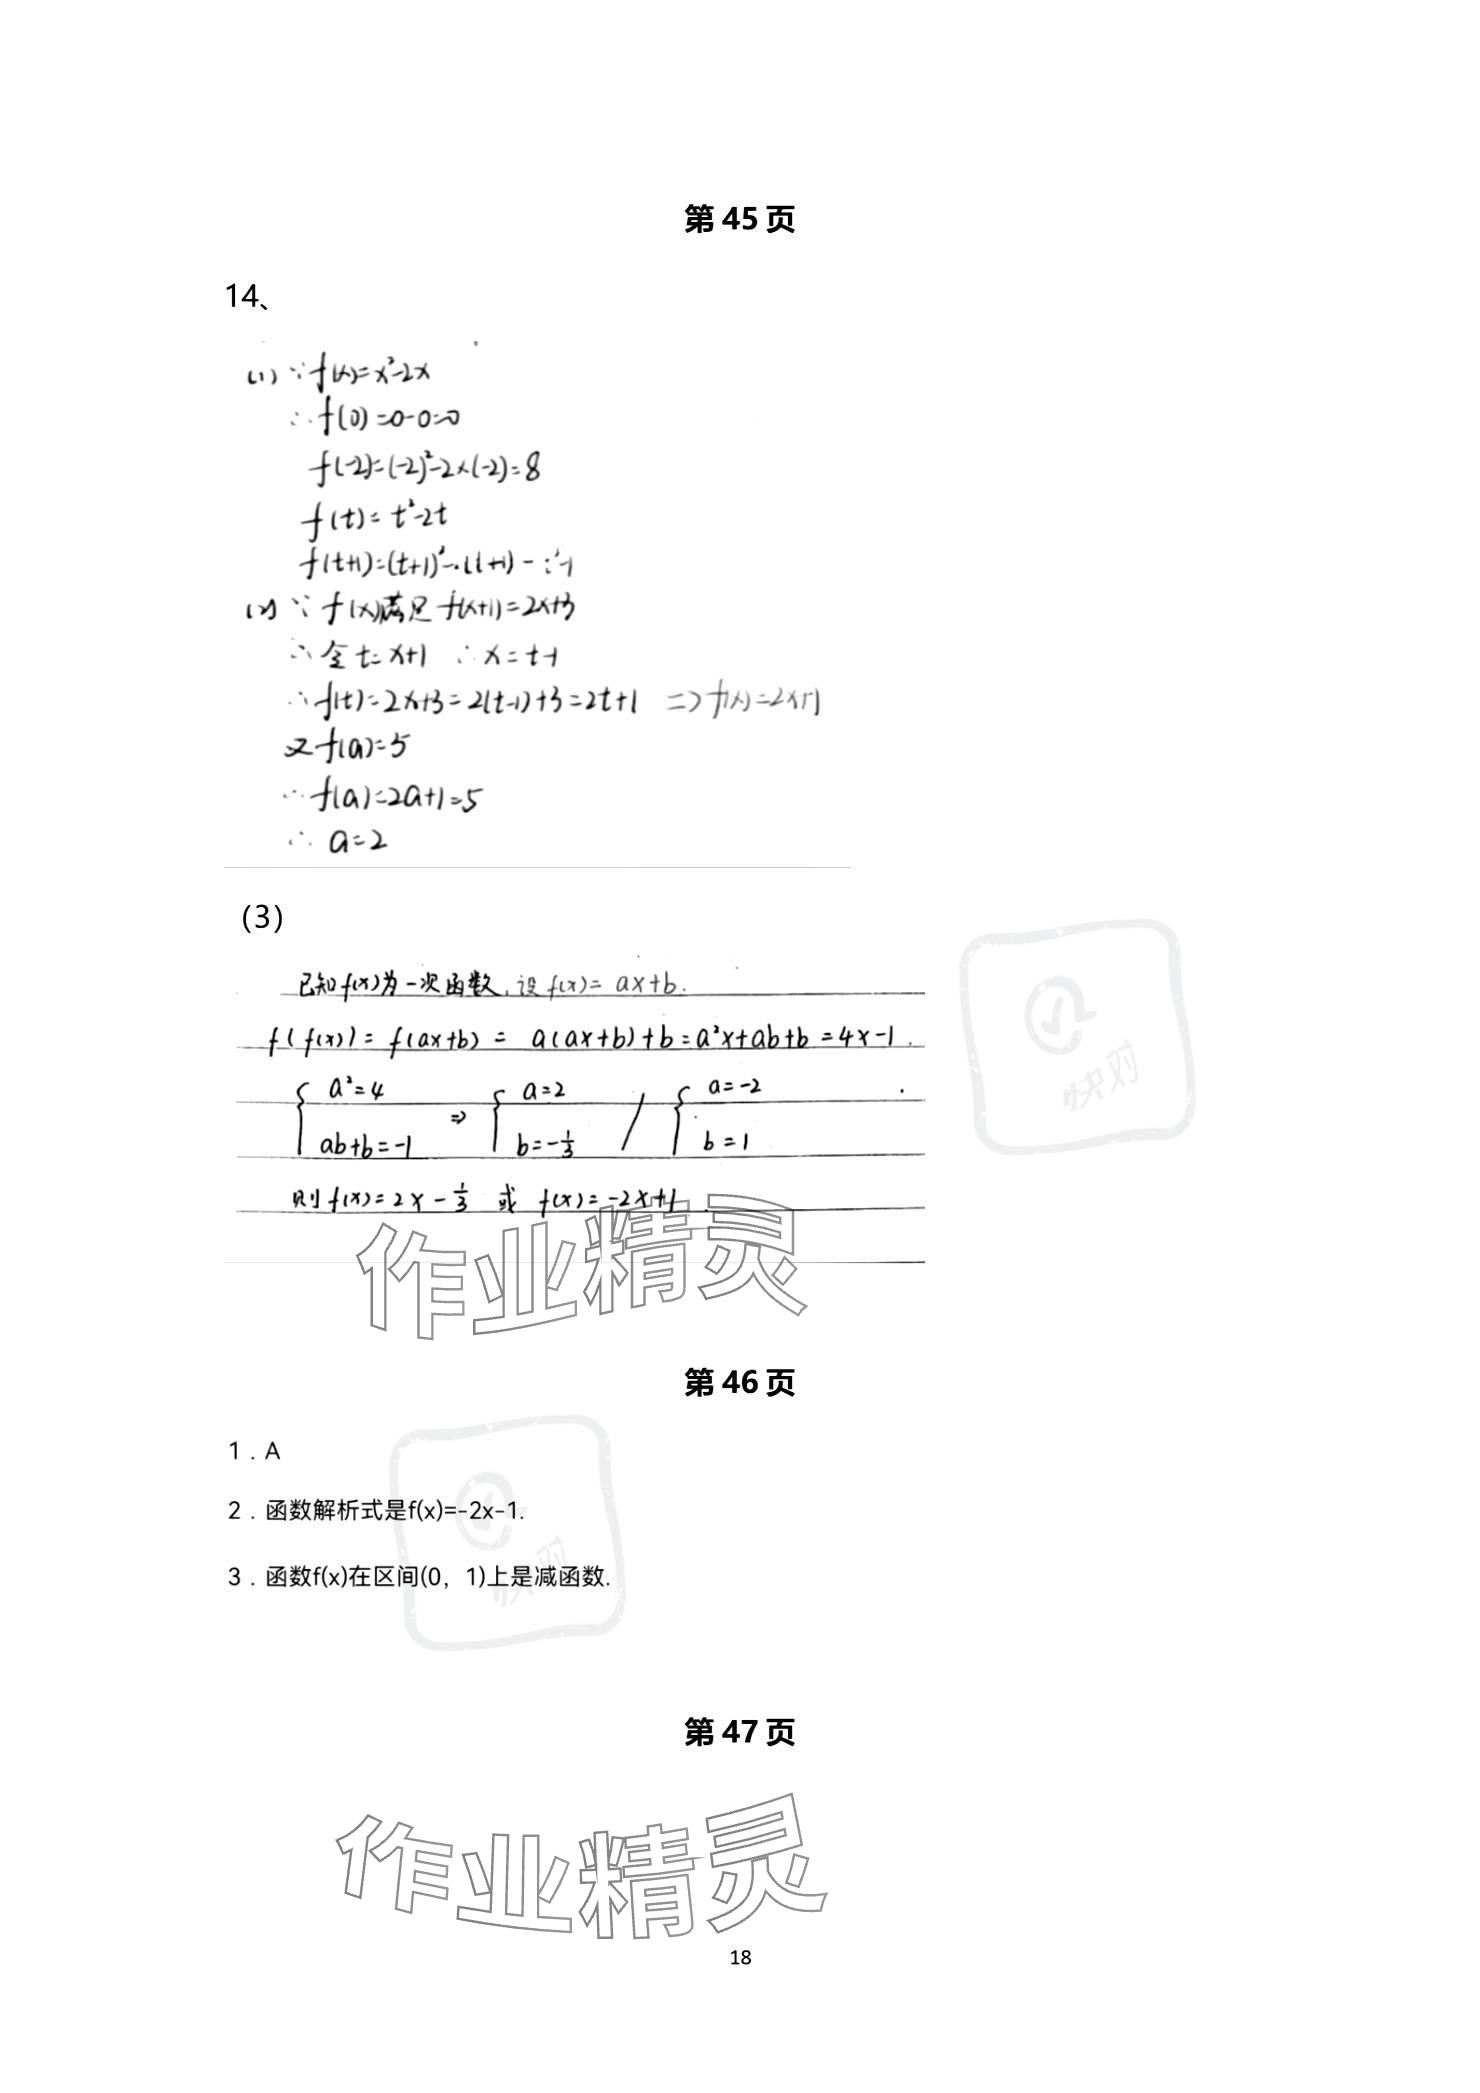 第 45 页
14、
(1) ∵f(x)=x²-2x
∴f(0)=0-0=0
f(-2)=(-2)²-2×(-2)=8
f(t)=t²-2t
f(t+1)=(t+1)²-
(2) ∵f(x)满足f(x+1)=2x+3
∴令t=x+1 ∴x=t-1
∴f(t)=2x+3=2(t-1)+3=2t+1 =>f(x)=2x+1
又f(a)=5
∴f(a)=2a+1=5
∴a=2
(3)
已知f(x)为一次函数,设f(x)=ax+b.
f(f(x))=f(ax+b)=a(ax+b)+b=a²x+ab+b=4x-1.
{a²=4 {a=2 {a=-2
ab+b=-1 ⇒ b=-1/3 / b=1
则f(x)=2x-1/3 或 f(x)=-2x+1.
快对
作业精灵
第 46 页
1 . A
2 . 函数解析式是f(x)=-2x-1.
3 . 函数f(x)在区间(0，1)上是减函数.
快对
第 47 页
作业精灵
18